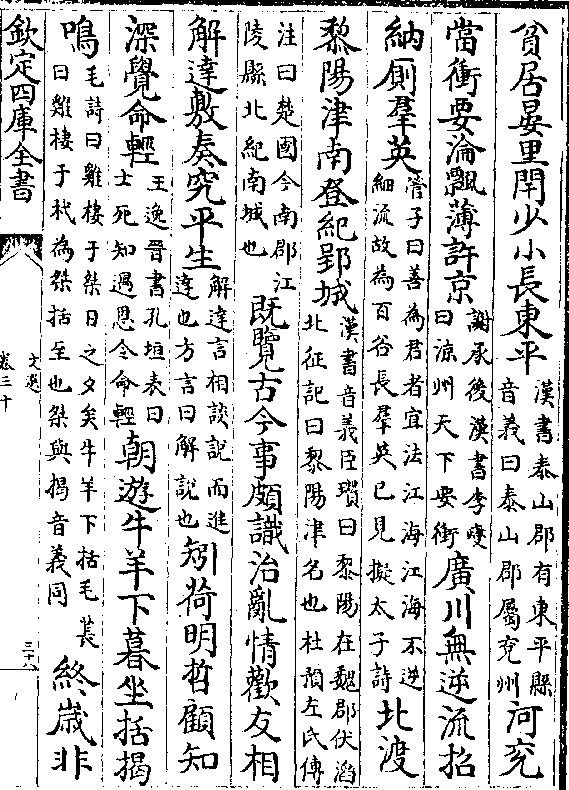 貧居晏里閈少小長東平漢書泰山郡有東平縣音義曰泰山郡屬兖州河兖
當衝要淪飄薄許京謝承後漢書李燮曰凉州天下要衝廣川無逆流招
納厠羣英管子曰善為君者宜法江海江海不逆細流故為百谷長羣英已見擬太子詩北渡
黎陽津南登紀郢城漢書音義臣瓚曰黎陽在魏郡伏滔北征記曰黎陽津名也杜預左氏傳
注曰楚國今南郡江陵縣北紀南城也既覽古今事頗識治亂情歡友相
解達敷奏究平生解達言相談說而進達也方言曰解說也矧荷明哲顧知
深覺命輕王逸晉書孔垣表曰士死知過恩令命輕朝遊牛羊下暮坐括揭
鳴毛詩曰雞棲于桀日之夕矣牛羊下括毛萇曰雞棲于杙為桀括至也桀與揭音義同終歲非
欽定四庫全書
文選
卷三十
三十八